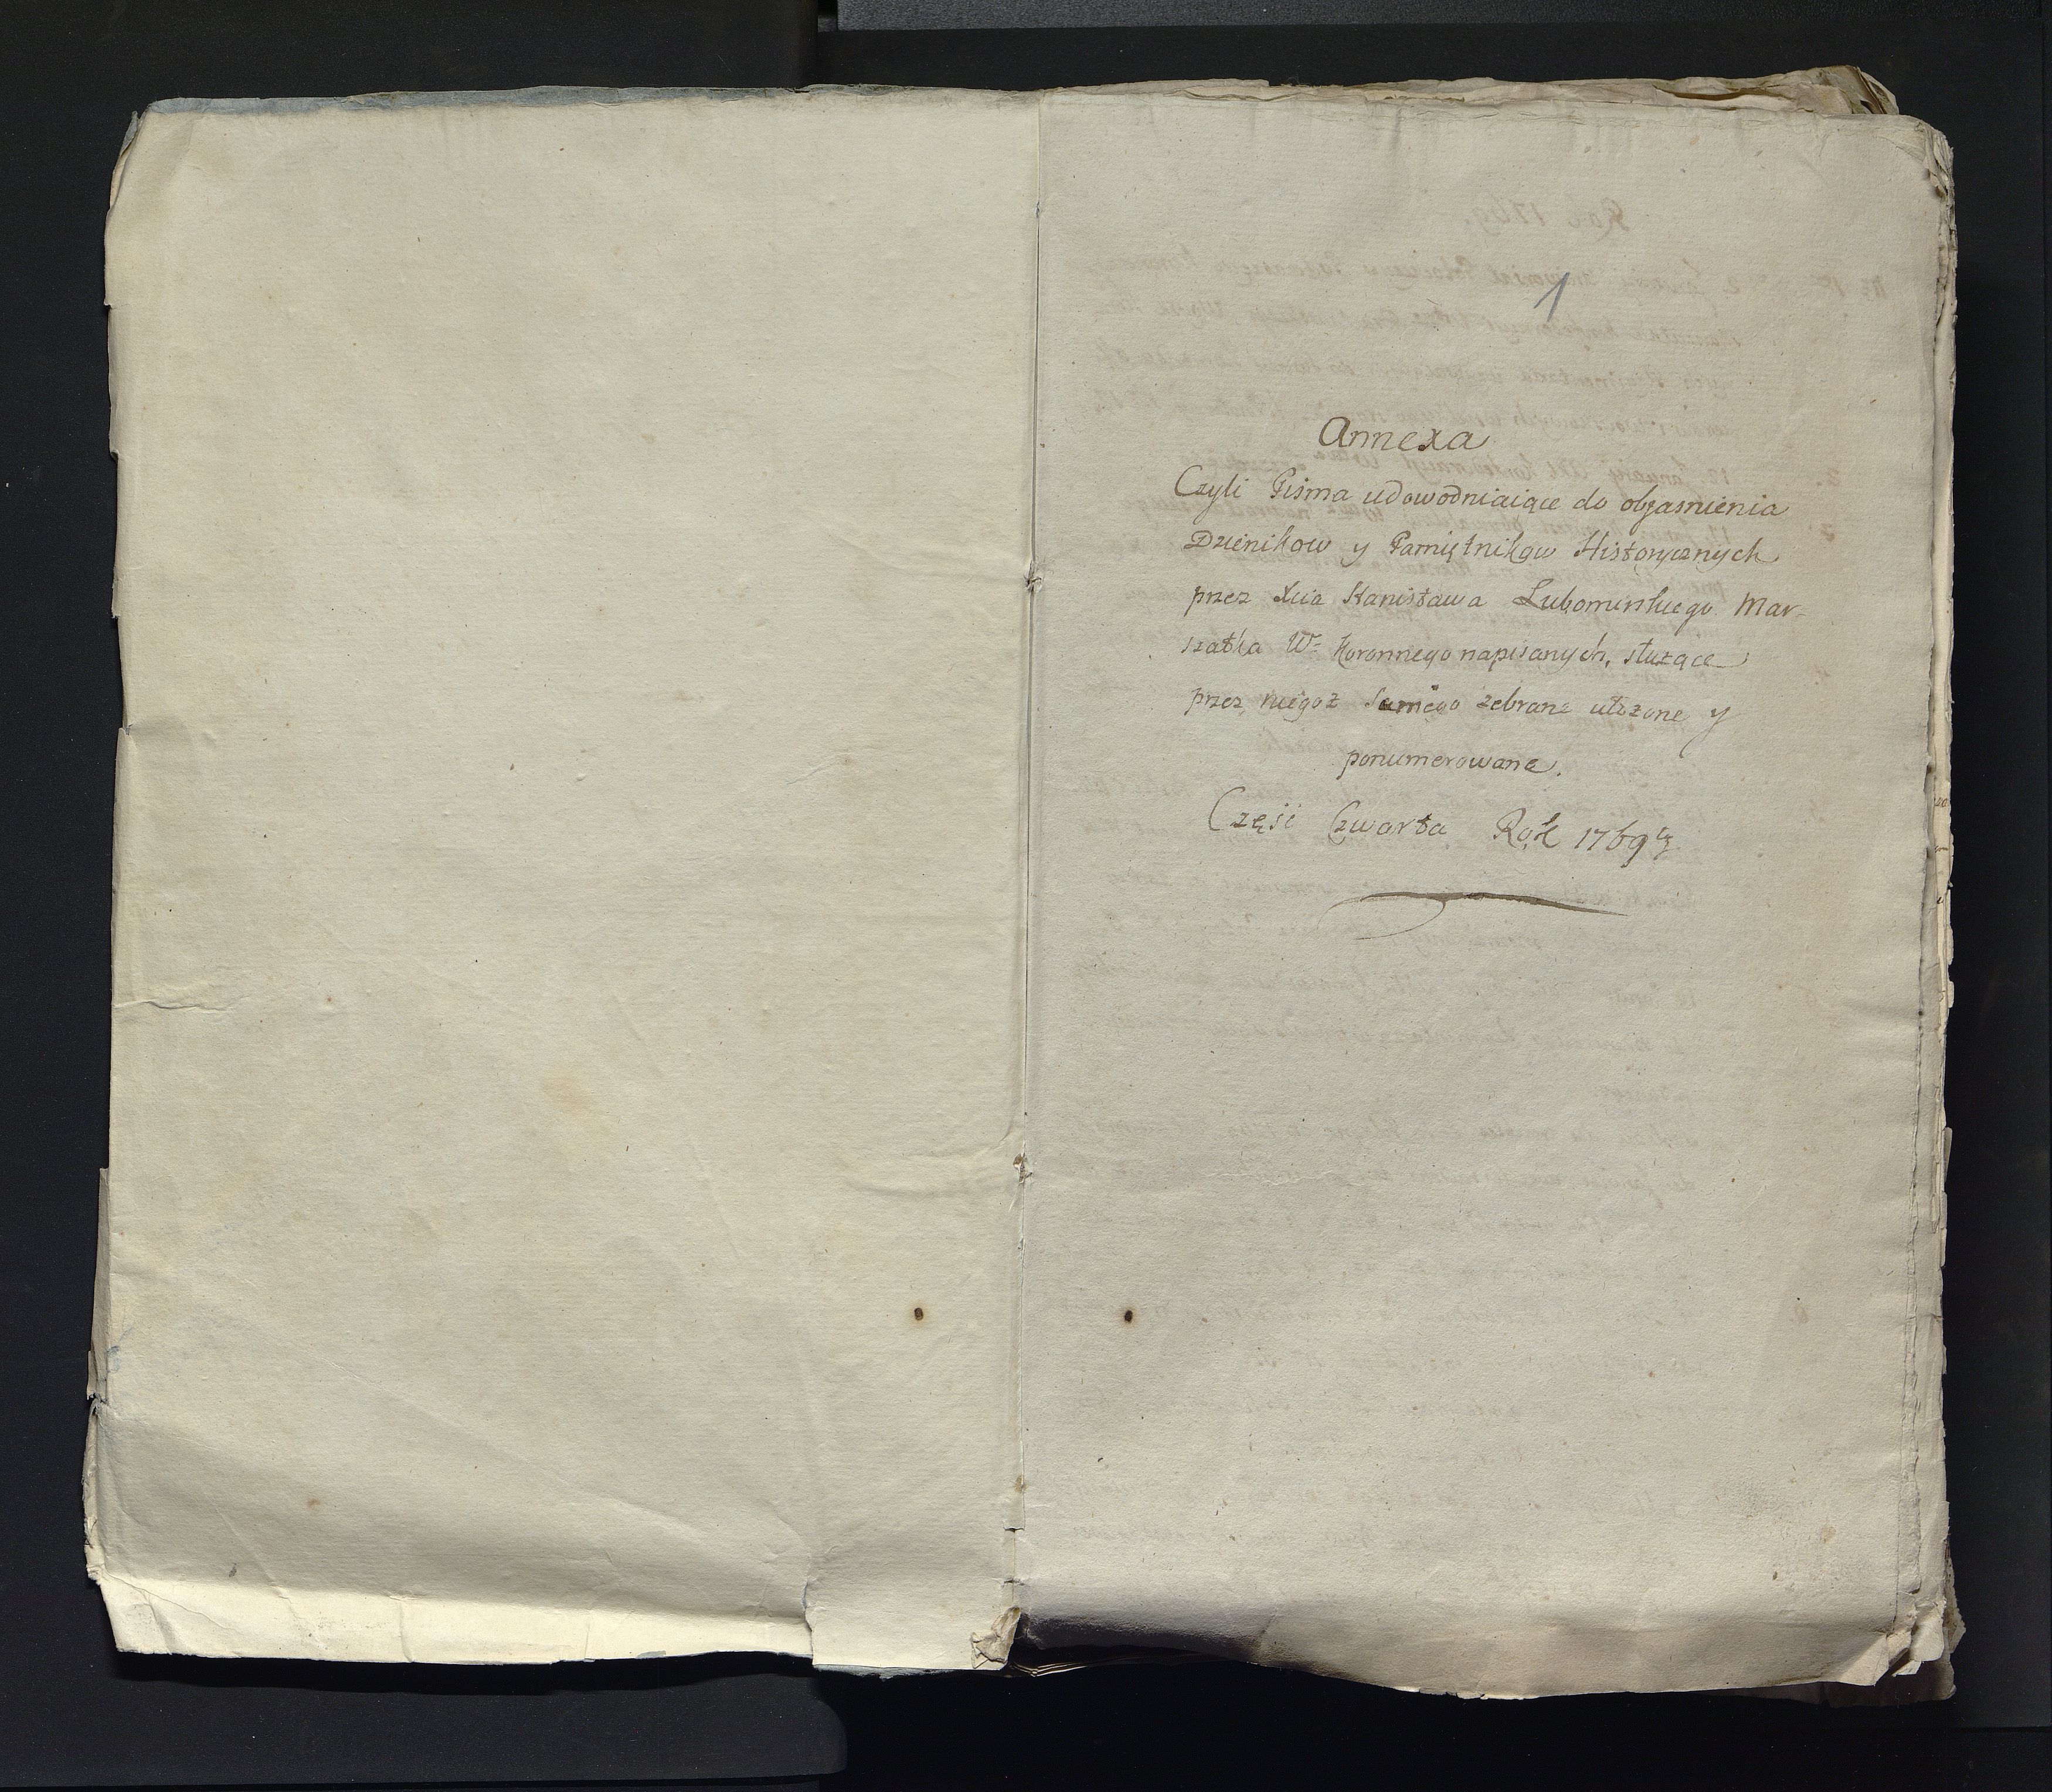 1
Annexa
Czyli Pisma udowodniaiące do objasnienia
Dziēnikow y Pamiętnikow Historycznych
przez Xcia Stanisława Lubomirskiego Mar=
szałka W° Koronnego napisanych, słuzące
przez niegoz samego zebrane ułozone y
ponumerowane.
Częsć Czwarta Rok 1769